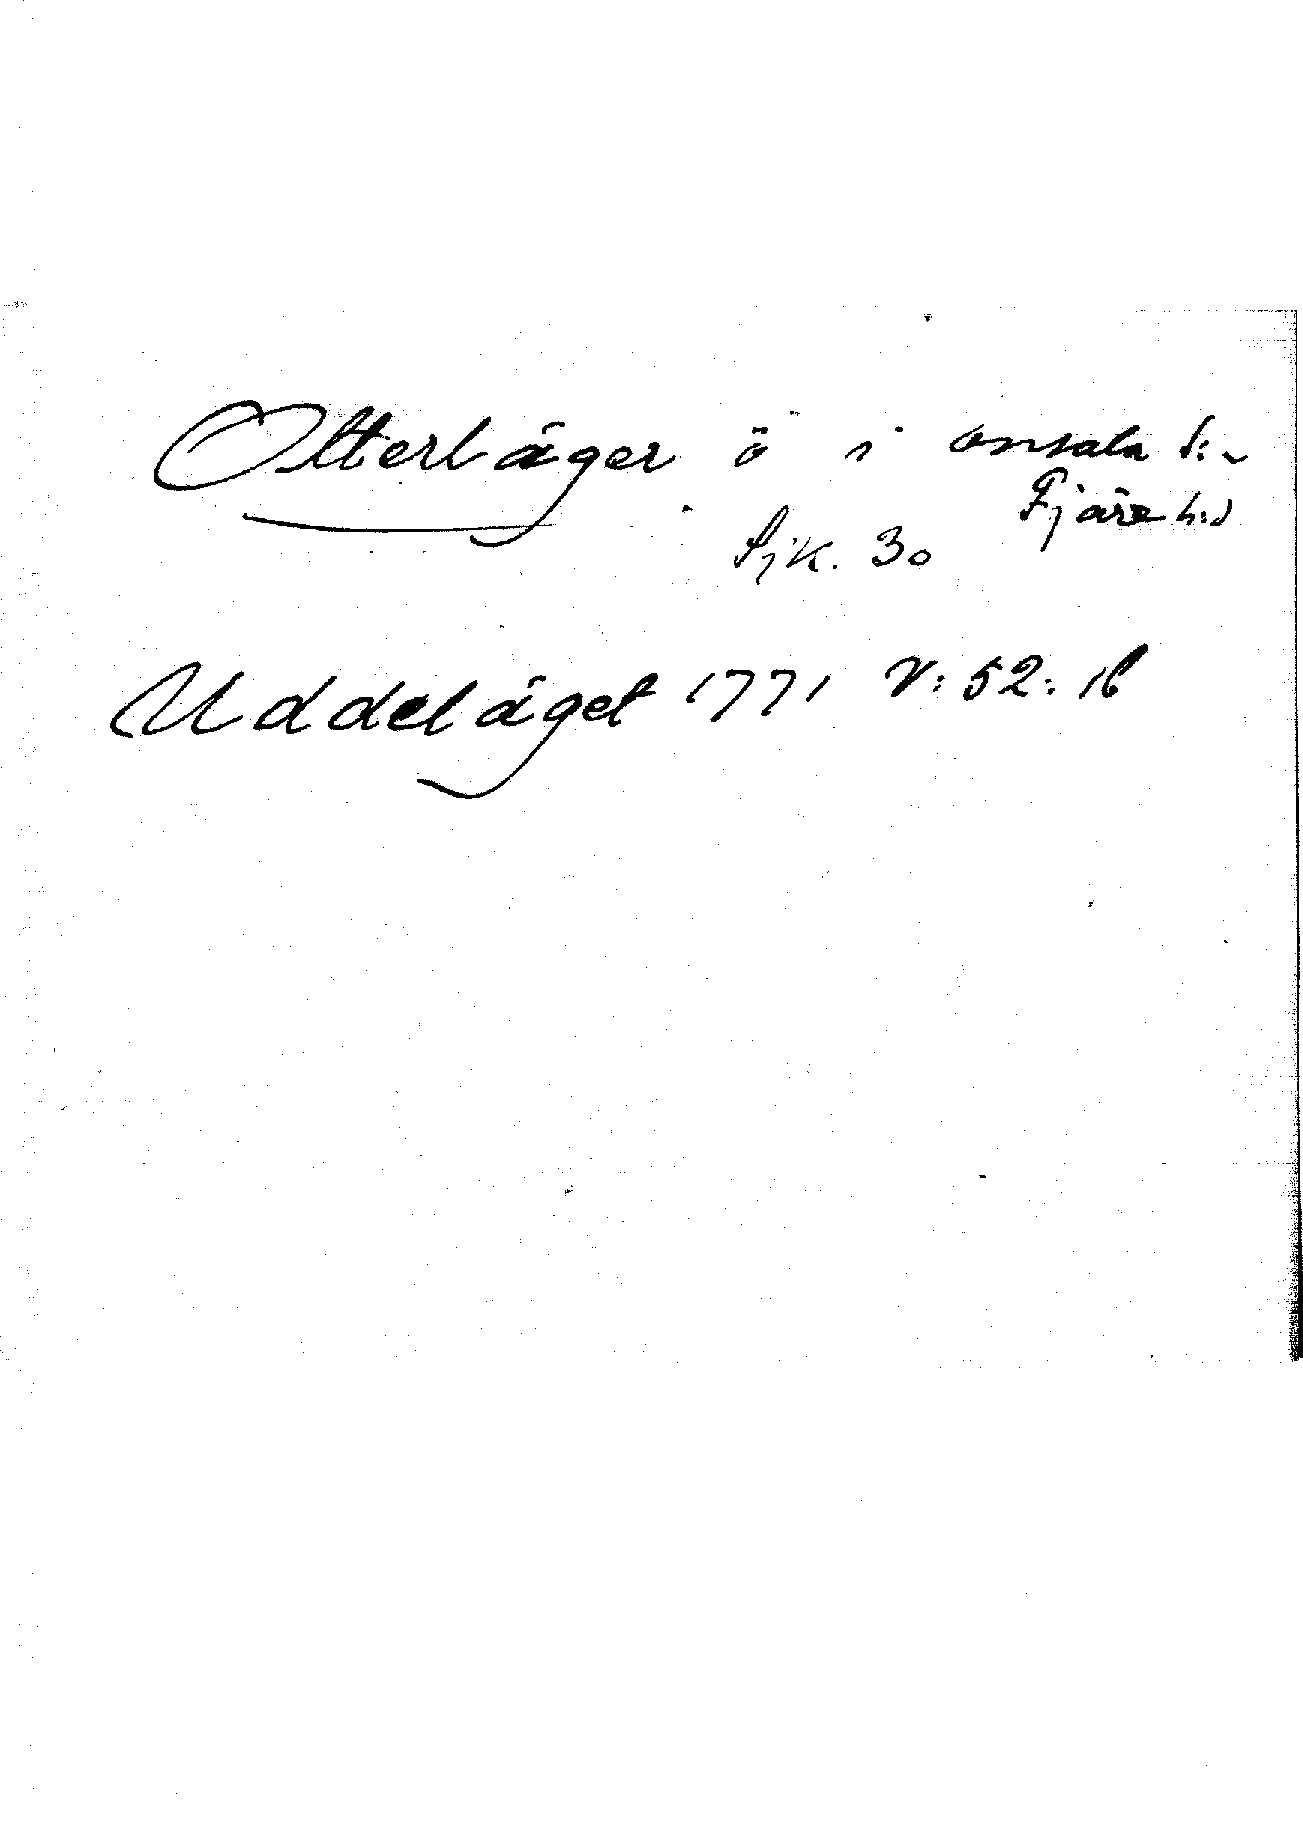 Otterläger ö i Onsala s:n
Fjäre h:d
Sjk. 30
Uddeläget 1771 V: 52: 16